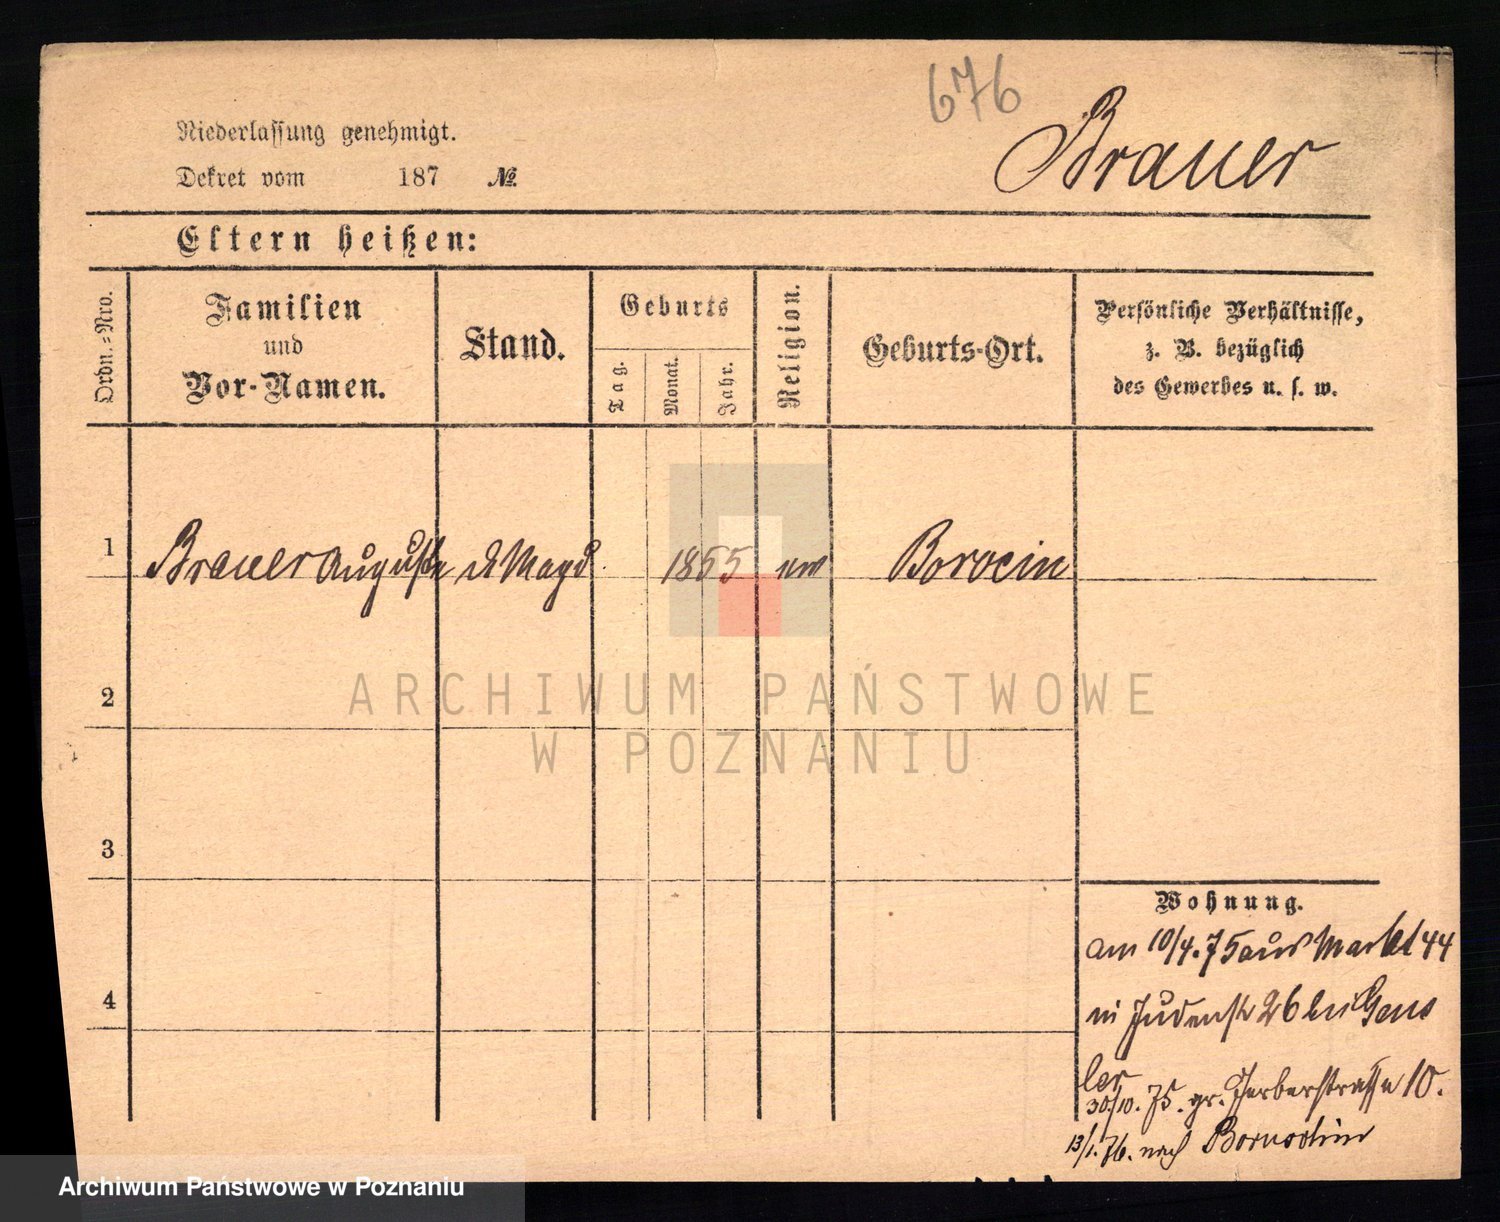 676
Brauer
Niederlassung genehmigt.
Dekret vom 187 №.
Eltern heißen:
Ordn.=Nro.
Familien
und
Vor-Namen.
Stand.
Geburts
Tag.
Monat.
Jahr.
Religion.
Geburts-Ort.
Persönliche Verhältnisse,
z. B. bezüglich
des Gewerbes u. s. w.
1 Brauer Auguste d Magd 1855 Borocin
2
3
4
ARCHIWUM PAŃSTWOWE
W POZNANIU
Wohnung.
am 10/4.75 aus Markt 44
in Judenstr 26 bei Gens
ler
30/10.75. gr. Gerberstrasse 10.
13/1.76. nach
Archiwum Państwowe w Poznaniu